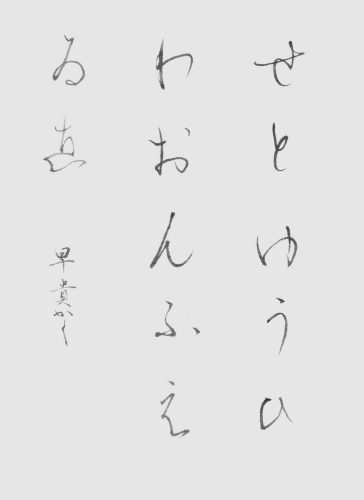 せとゆうひ
わおんふえ
ゐゑ
早貴かく